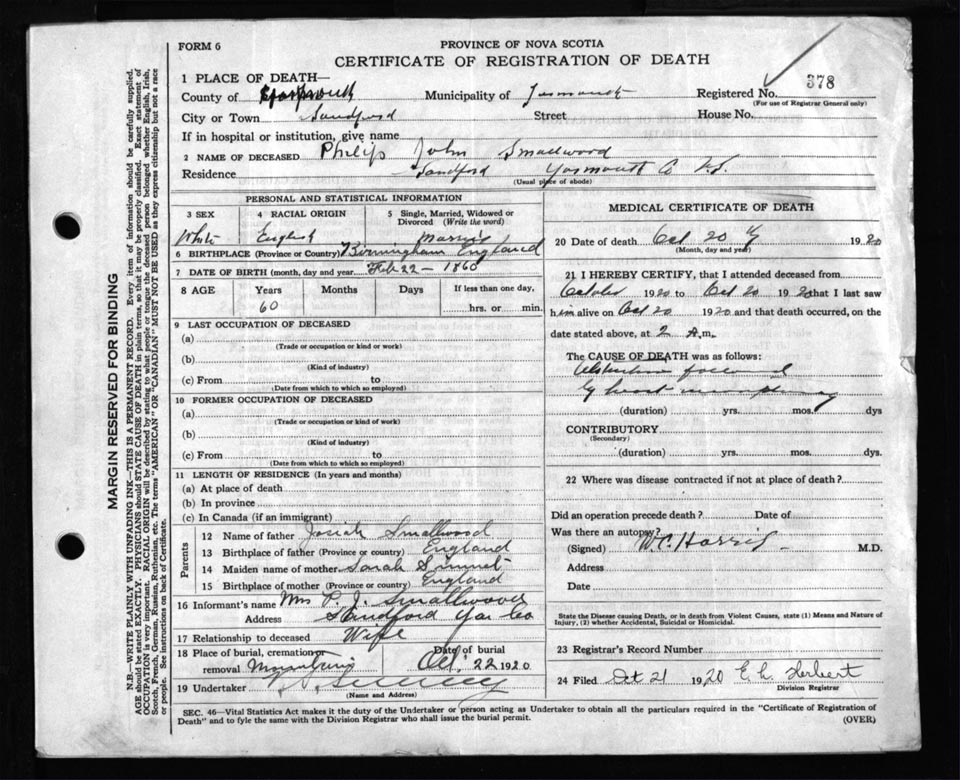 FORM 6
PROVINCE OF NOVA SCOTIA
CERTIFICATE OF REGISTRATION OF DEATH
378
1 PLACE OF DEATH—
County of Yarmouth Municipality of Yarmouth Registered No.
(For use of Registrar General only)
City or Town Sandford Street House No.
If in hospital or institution, give name
2 NAME OF DECEASED Philip John Smallwood
Residence Sandford Yarmouth Co N.S.
(Usual place of abode)
PERSONAL AND STATISTICAL INFORMATION
3 SEX 4 RACIAL ORIGIN 5 Single, Married, Widowed or Divorced (Write the word)
White English Married
6 BIRTHPLACE (Province or Country) Birmingham England
7 DATE OF BIRTH (month, day and year) Feb 22 - 1860
8 AGE Years Months Days If less than one day,
60 hrs. or min.
9 LAST OCCUPATION OF DECEASED
(a)
(Trade or occupation or kind or work)
(b)
(Kind of industry)
(c) From to
(Date from which to which so employed)
10 FORMER OCCUPATION OF DECEASED
(a)
(Trade or occupation or kind of work)
(b)
(Kind of industry)
(c) From to
(Date from which to which so employed)
11 LENGTH OF RESIDENCE (In years and months)
(a) At place of death
(b) In province
(c) In Canada (if an immigrant)
Parents
12 Name of father Josiah Smallwood
13 Birthplace of father (Province or country) England
14 Maiden name of mother Sarah
15 Birthplace of mother (Province or country) England
16 Informant's name Mrs P. J. Smallwood
Address Sandford Yar Co
17 Relationship to deceased Wife
18 Place of burial, cremation or removal Date of burial
Oct. 22 1920
19 Undertaker
(Name and Address)
MEDICAL CERTIFICATE OF DEATH
20 Date of death Oct 20 1920
(Month, day and year)
21 I HEREBY CERTIFY, that I attended deceased from
October 1920 to Oct 20 1920 that I last saw
him alive on Oct 20 1920 and that death occurred, on
date stated above, at 2 A.m.
The CAUSE OF DEATH was as follows:
(duration) yrs. mos. dys
CONTRIBUTORY
(Secondary)
(duration) yrs. mos. dys.
22 Where was disease contracted if not at place of death?
Did an operation precede death? Date of
Was there an autopsy?
(Signed) W. C. Harris M.D.
Address
Date
State the Disease causing Death, or in death from Violent Causes, state (1) Means and Nature of
Injury, (2) whether Accidental, Suicidal or Homicidal.
23 Registrar's Record Number
24 Filed Oct 21 1920 E. L. Herbert
Division Registrar
SEC. 46—Vital Statistics Act makes it the duty of the Undertaker or person acting as Undertaker to obtain all the particulars required in the "Certificate of Registration of
Death" and to fyle the same with the Division Registrar who shall issue the burial permit.
(OVER)
MARGIN RESERVED FOR BINDING
N.B.—WRITE PLAINLY WITH UNFADING INK—THIS IS A PERMANENT RECORD. Every item of information should be carefully supplied.
AGE should be stated EXACTLY. PHYSICIANS should STATE CAUSE OF DEATH in plain terms, so that it may be properly classified. Exact statement of
OCCUPATION is very important. RACIAL ORIGIN will be described by stating to what people or tongue the deceased person belonged whether English, Irish,
Scotch, French, German, Russian, Ruthenian, etc. The terms "AMERICAN" OR "CANADIAN" MUST NOT BE USED as they express citizenship but not a race
or people. See instructions on back of Certificate.